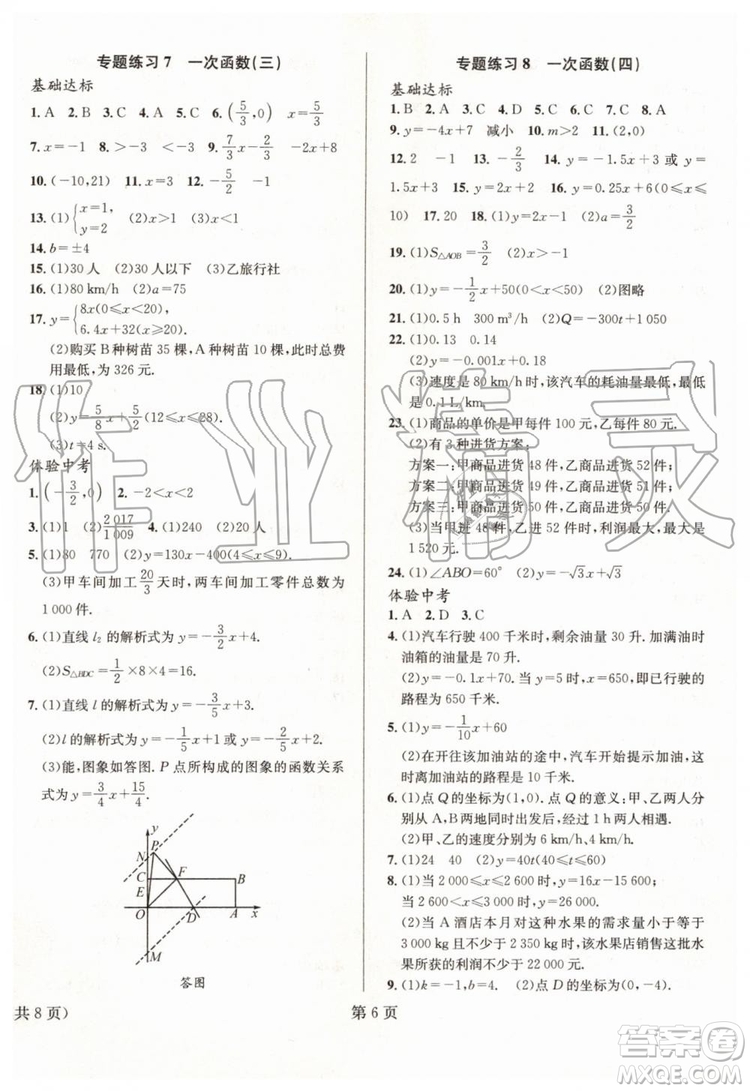 专题练习7 一次函数(三)
基础达标
1. A 2. B 3. C 4. A 5. C 6. (5/3,0)
7. x=-1 8. >-3 <-3 9. 7/3 -7/2 10... -2x+8
10. (-10,21) 11. x>3 12. -5/2 -1
13. (1){x=1, y=2 (2)x<1
14. b=±4
15. (1)30 人 (2)30 人以下 (3)乙旅行社
16. (1)80 km/h (2)a=75
17. y={8x(0≤x≤20) 6.4x+32(x≥20)
(2)购买 B 种树苗 35 棵,A 种树苗 10 棵,此时总费
用最低,为 326 元.
18. (1)10
(2)y=5/8 x+5/2(12≤x≤28).
(3)t=4 s.
体验中考
1. (-3/2,0) 2. -2<x<2
3. (1)1 (2)2 017/1 009 4. (1)240 (2)20
5. (1)80 770 (2)y=130x-400(4≤x≤9).
(3)甲车间加工20/3天时,两车间加工零件总数为
1 000 件.
6. (1)直线 l₂ 的解析式为 y=-3/2 x+6
(2)S△BDC=1/2×8×4=16.
7. (1)直线 l 的解析式为 y=-3/5 x+3
(2)l 的解析式为 y=-1/5 x+2 或 y=-2/5 x+1
(3)能,图象如答图. P 点所构成的图象的函数关系
式为 y=3/4 x+15/4
y
P
N
C F B
E
O D A x
M
答图
共 8 页)
第 6 页
专题练习8 一次函数(四)
基础达标
1. B 2. A 3. C 4. D 5. C 6. C 7. C 8. A
9. y=-4x+7 减小 10. m>2 11. (2,0)
12. 2 -1 13. -2/3 14. y=-1.5x+3 或 y=
1.5x+3 15. y=2x+2 16. y=0.25x+6(0≤x≤
10) 17. 20 18. (1)y=2x-1 (2)a=3/2
19. (1)S△AOB=3/2 (2)x>-1
20. (1)y=-1/2 x+5(0<x<10) (2)图略
21. (1)0.5 h 300 m³/h (2)Q=-300t+1 050
22. (1)0.13 0.14
(2)y=-0.001x+0.18
(3)速度是 80 km/h 时,该汽车的耗油量最低,最低
是 0.1 L/km.
23. (1)商品的单价是甲每件 100 元,乙每件 80 元.
(2)有 3 种进货方案:
方案一:甲商品进货 48 件,乙商品进货 52 件;
方案二:甲商品进货 49 件,乙商品进货 51 件;
方案三:甲商品进货 50 件,乙商品进货 50 件.
(3)当甲进 48 件,乙进 52 件时,利润最大,最大是
1 520 元.
24. (1)∠ABO=60° (2)y=-√3x+√3
体验中考
1. A 2. D 3. C
4. (1)汽车行驶 400 千米时,剩余油量 30 升. 加满油时
油箱的油量是 70 升.
(2)y=-0.1x+70. 当 y=5 时,x=650. 即已行驶的
路程为 650 千米.
5. (1)y=-1/10 x+60
(2)在开往该加油站的途中,汽车开始提示加油,这
时离加油站的路程是 10 千米.
6. (1)点 Q 的坐标为(1,0). 点 Q 的意义:甲、乙两人
分别从 A、B 两地同时出发后,经过 1 个小时两人
相遇.
(2)甲、乙的速度分别为 6 km/h、4 km/h.
7. (1)24 40 (2)y=40t(40≤t≤60)
8. (1)当 2 000≤x≤2 600 时,y=18x-15 600;当
2 600<x≤3 000 时,y=31 200.
(2)当 A 酒店本月对这种水果的需求量小于等于
3 000 kg 且不少于 2 350 kg 时,该水果店销售这批
水果所获的利润不少于 22 000 元.
9. (1)k=-2,b=4 (2)点 D 的坐标为(0,-4).
作业精灵
答案圈
MXQE.COM